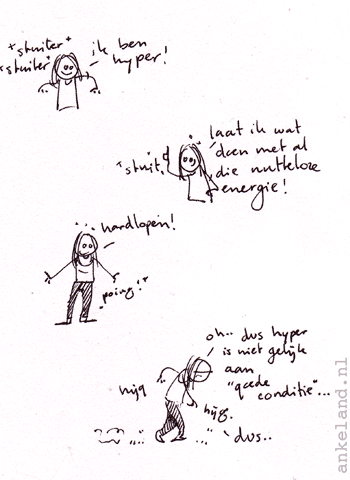 *stuiter*
*stuiter*
ik ben
hyper!
*stuit*
laat ik wat
doen met al
die nutteloze
energie!
hardlopen!
*poing!*
oh.. dus hyper
is niet gelijk
aan
"goede
conditie"...
hijg
hijg.
dus..
ankeland.nl